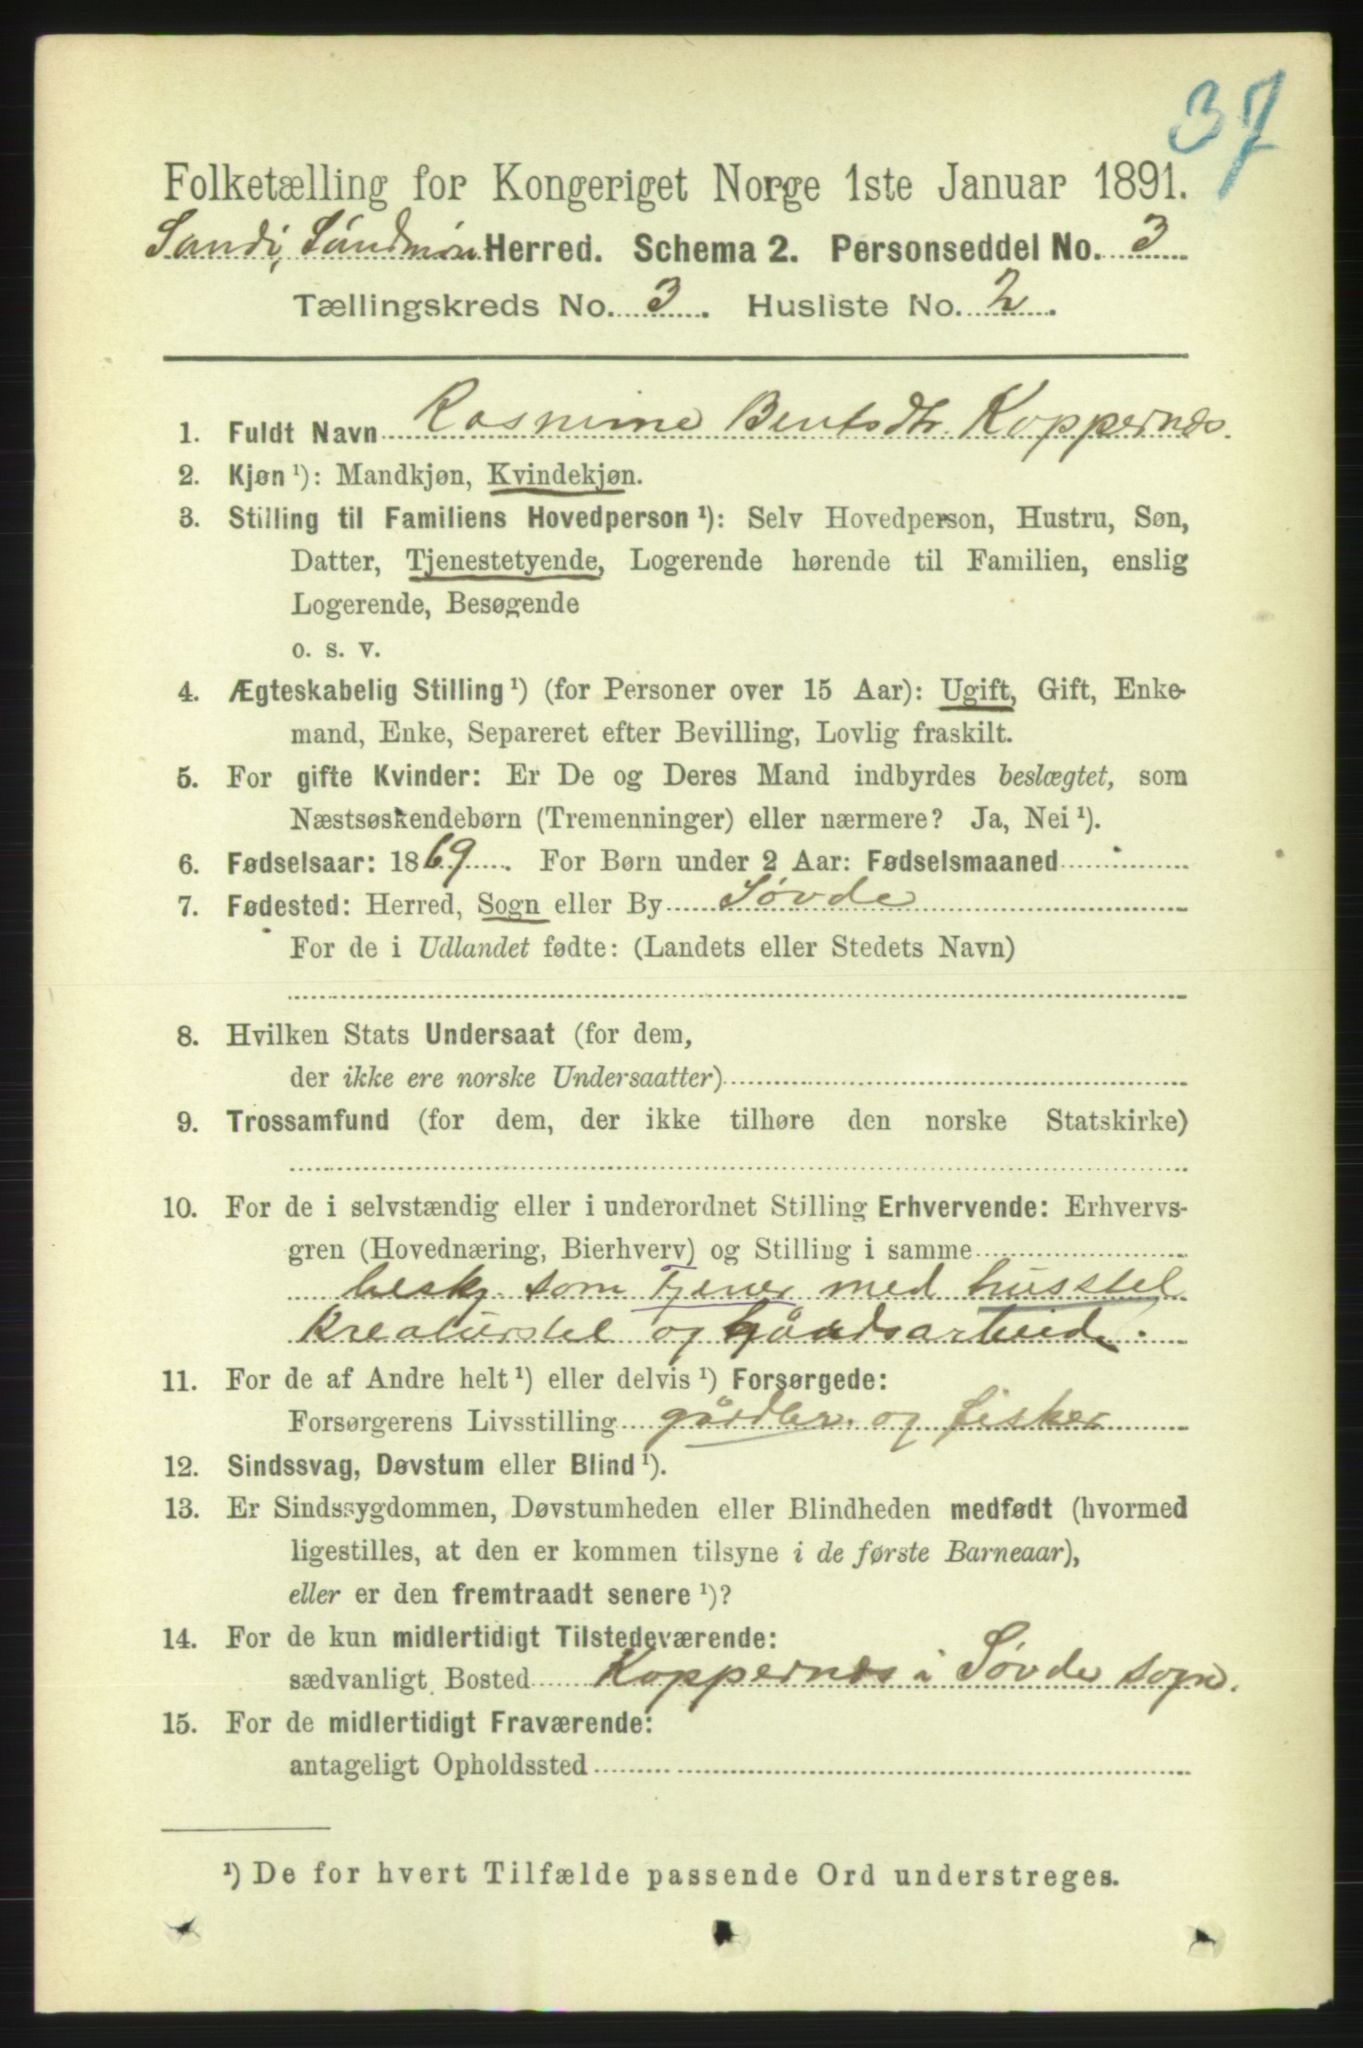 37
Folketælling for Kongeriget Norge 1ste Januar 1891.
Sandö, Söndmör Herred. Schema 2. Personseddel No. 3
Tællingskreds No. 3. Husliste No. 2.
1. Fuldt Navn Rasmine Bentsdtr. Koppernæs.
2. Kjøn ¹): Mandkjøn, Kvindekjøn.
3. Stilling til Familiens Hovedperson ¹): Selv Hovedperson, Hustru, Søn,
Datter, Tjenestetyende, Logerende hørende til Familien, enslig
Logerende, Besøgende
o. s. v.
4. Ægteskabelig Stilling ¹) (for Personer over 15 Aar): Ugift, Gift, Enke-
mand, Enke, Separeret efter Bevilling, Lovlig fraskilt.
5. For gifte Kvinder: Er De og Deres Mand indbyrdes beslægtet, som
Næstsøskendebørn (Tremenninger) eller nærmere? Ja, Nei ¹).
6. Fødselsaar: 1869. For Børn under 2 Aar: Fødselsmaaned
7. Fødested: Herred, Sogn eller By Søvde
For de i Udlandet fødte: (Landets eller Stedets Navn)
8. Hvilken Stats Undersaat (for dem,
der ikke ere norske Undersaatter)
9. Trossamfund (for dem, der ikke tilhøre den norske Statskirke)
10. For de i selvstændig eller i underordnet Stilling Erhvervende: Erhvervs-
gren (Hovednæring, Bierhverv) og Stilling i samme
beskj. som Tjener med husstel
kreaturstel og Gåardsarbeide.
11. For de af Andre helt ¹) eller delvis ¹) Forsørgede:
Forsørgerens Livsstilling gårdbr. og fisker
12. Sindssvag, Døvstum eller Blind ¹).
13. Er Sindssygdommen, Døvstumheden eller Blindheden medfødt (hvormed
ligestilles, at den er kommen tilsyne i de første Barneaar),
eller er den fremtraadt senere ¹)?
14. For de kun midlertidigt Tilstedeværende:
sædvanligt Bosted Koppernæs i Søvde sogn.
15. For de midlertidigt Fraværende:
antageligt Opholdssted
¹) De for hvert Tilfælde passende Ord understreges.